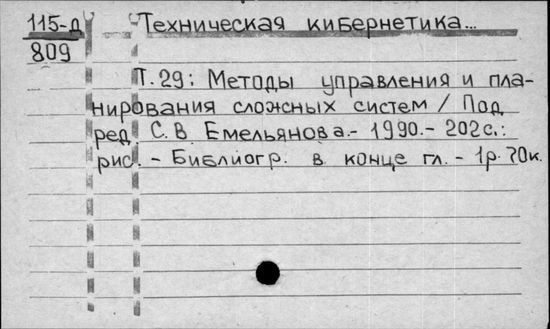 115-д Техническая кибернетика...
809
Т. 29: Методы управления и пла-
нирования сложных систем / Под
ред. С.В Емельянова.- 1990.- 202с.:
рис. - Библиогр. в конце гл. - 1р.70к.